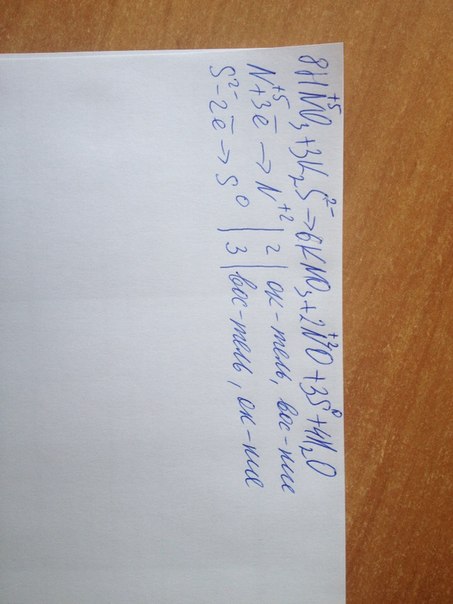 8HN⁺⁵O₃+3K₂S²⁻→6KNO₃+2N⁺²O+3S⁰+4H₂O
N⁺⁵+3e̅→N⁺²|2|ок-тель, вос-ние
S²⁻-2e̅→S⁰|3|вос-тель, ок-ние